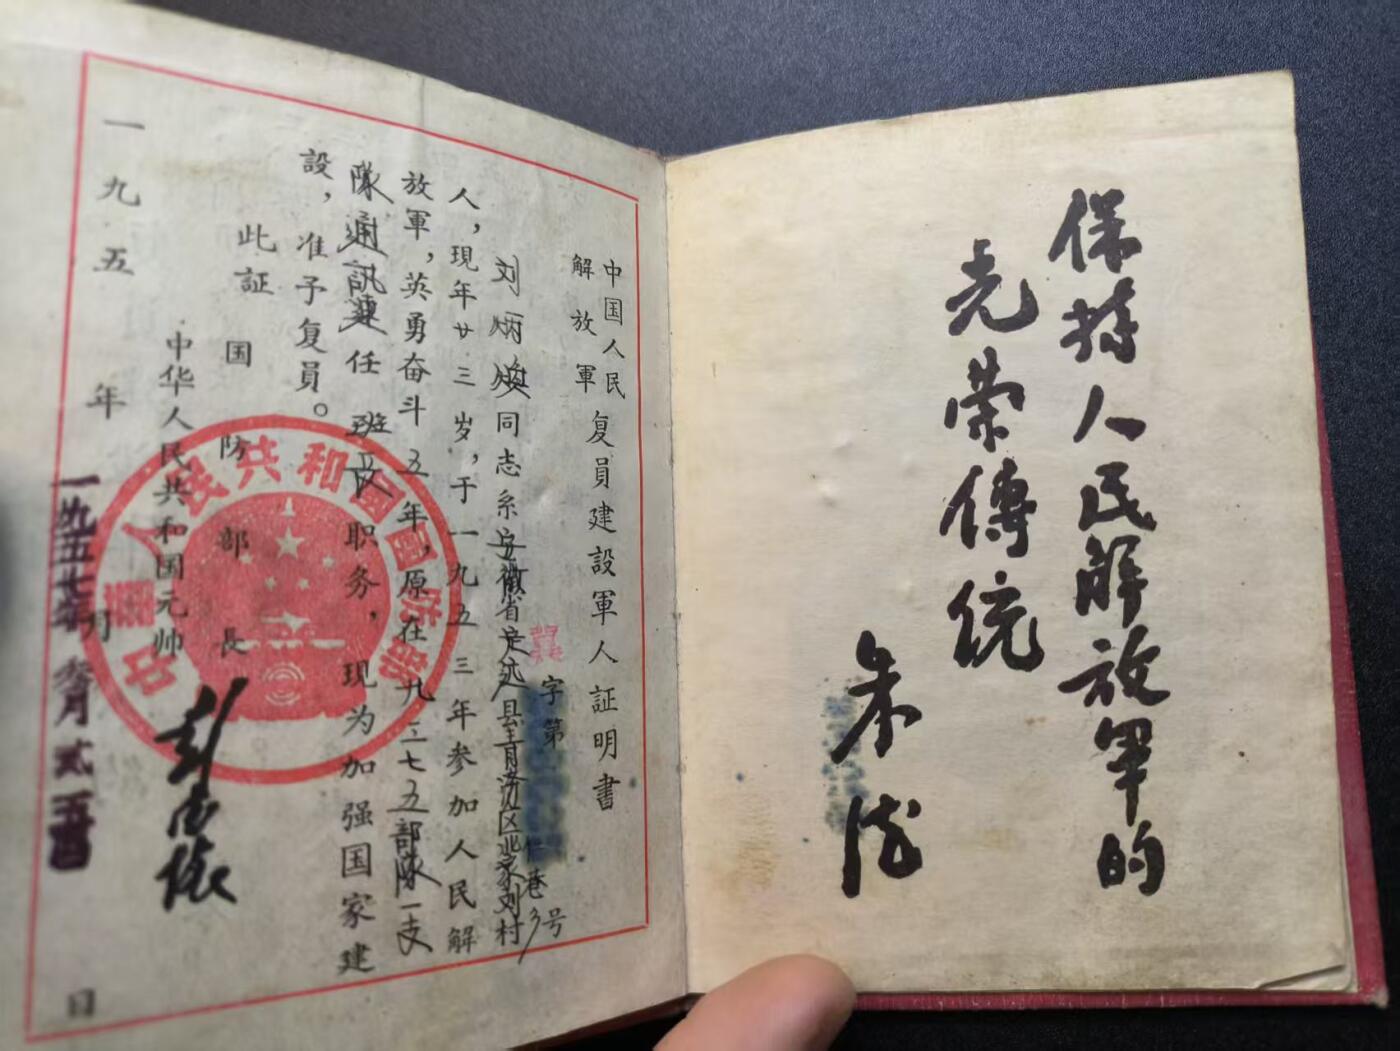 保持人民解放軍的
光荣傳統
朱德
中国人民
解放軍
复員建設軍人証明書
字第
号
刘炳焕同志系安徽省定远县青洛区北家刘村
人，現年廿三岁，于一九五三年参加人民解
放軍，英勇奋斗五年，原在九三七五部隊一支
隊通訊連任班長职务，现为加强国家建
設，准予复員。
此証
国防部長
中华人民共和国元帅
彭德懷
一九五年月日
一九五七年
月贰
中華人民共和國國防部